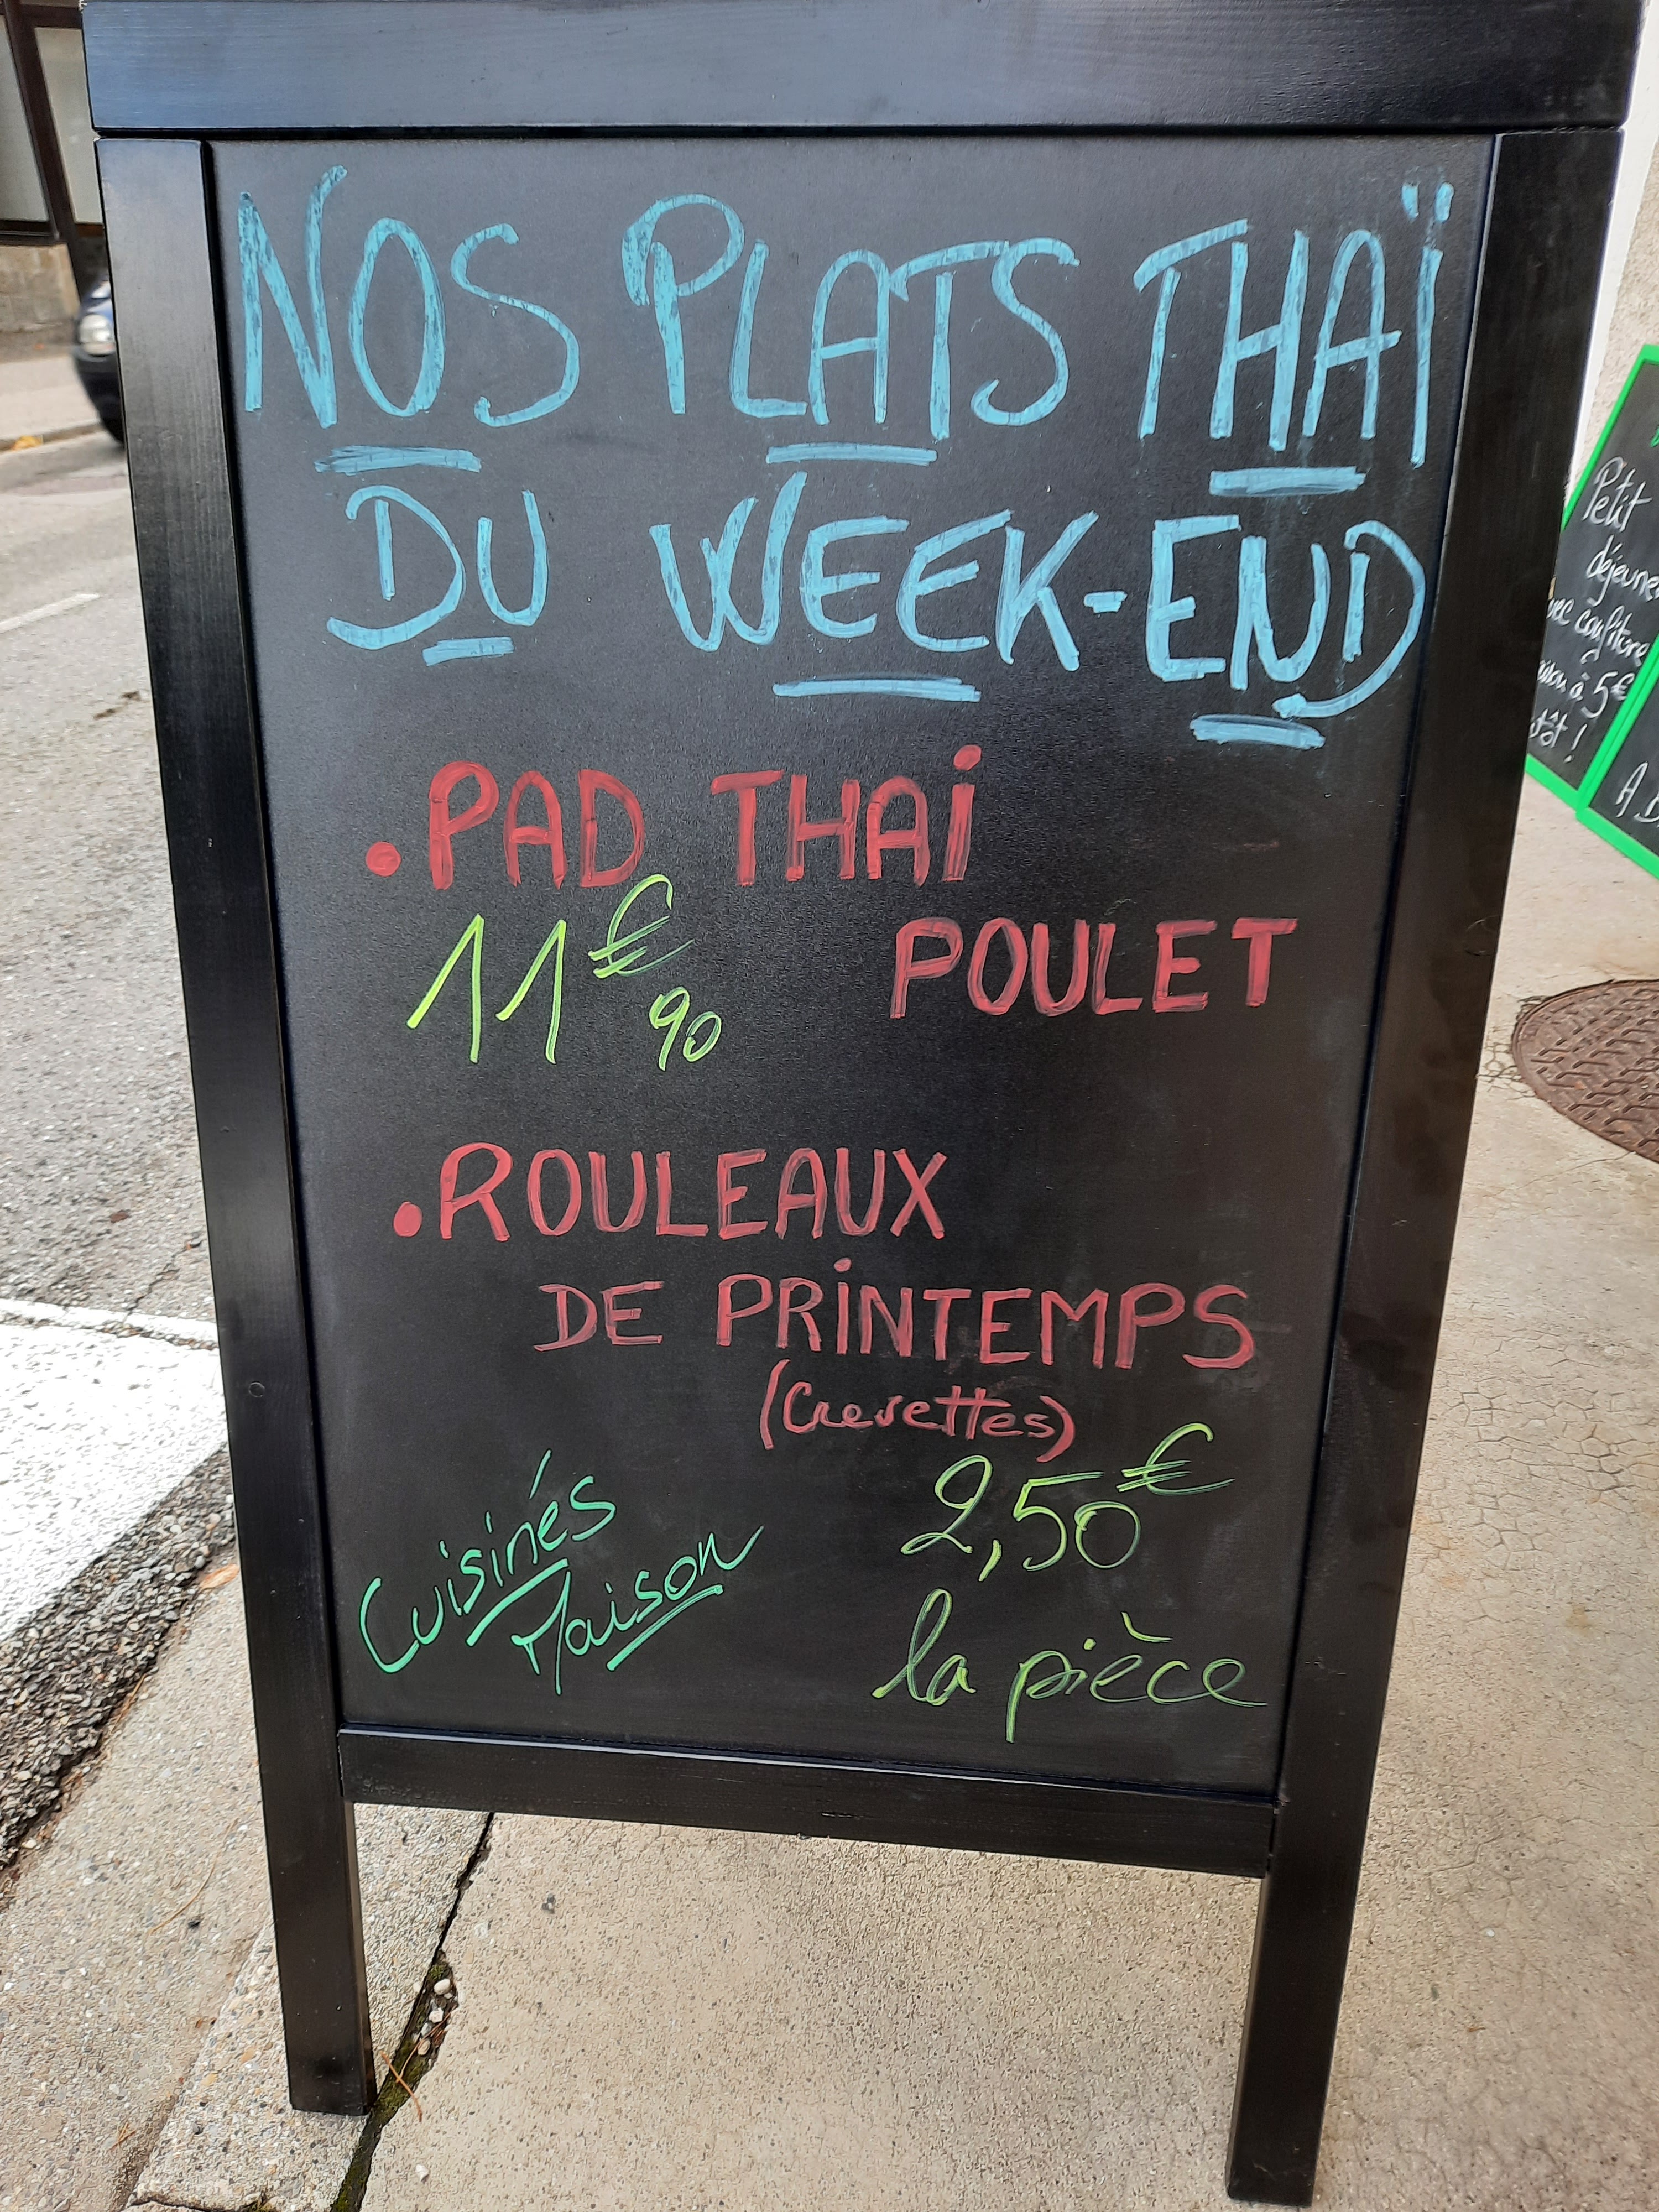 NOS PLATS THAÏ
DU WEEK-END
• PAD THAI
POULET
11€90
• ROULEAUX
DE PRINTEMPS
(Crevettes)
2,50€
la pièce
Cuisinés
Maison
Petit
déjeuner
confiture
à 5€
!
A